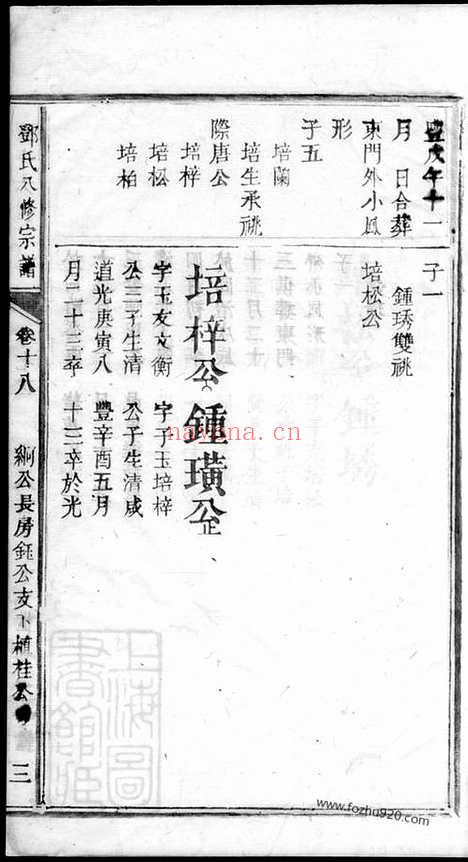 豐戊午十一
月 日合葬
東門外小鳳
形
子五
培蘭
培生承祧
際唐公
培梓
培松
培柏
子一
鍾琇雙祧
培松公
培梓公 鍾璜公
字玉友文衡 字子玉培梓
公三子生清 公子生清咸
道光庚寅八 豐辛酉五月
月二十三卒 十三卒於光
鄧氏八修宗譜
卷十八
綱公長房鈺公支下植桂公
三
nayona.cn
上海圖書館藏
www.fozhu920.com